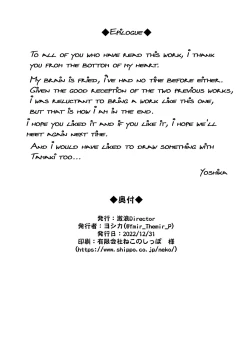 ◆Epilogue◆
To all of you who have read this work, i thank
you from the bottom of my heart.
My brain is fried, i've had no time before either.
Given the good reception of the two previous works,
i was reluctant to bring a work like this one,
but that is how i am in the end.
i hope you liked it and if you like it, i hope we'll
meet again next time.
And i would have liked to draw something with
Tamaki too...
Yoshika
◆奥付◆
発行：激浪Director
発行者：ヨシカ(@fmir_Themir_P)
発行日：2022/12/31
印刷：有限会社ねこのしっぽ 様
(https://www.shippo.co.jp/neko/)